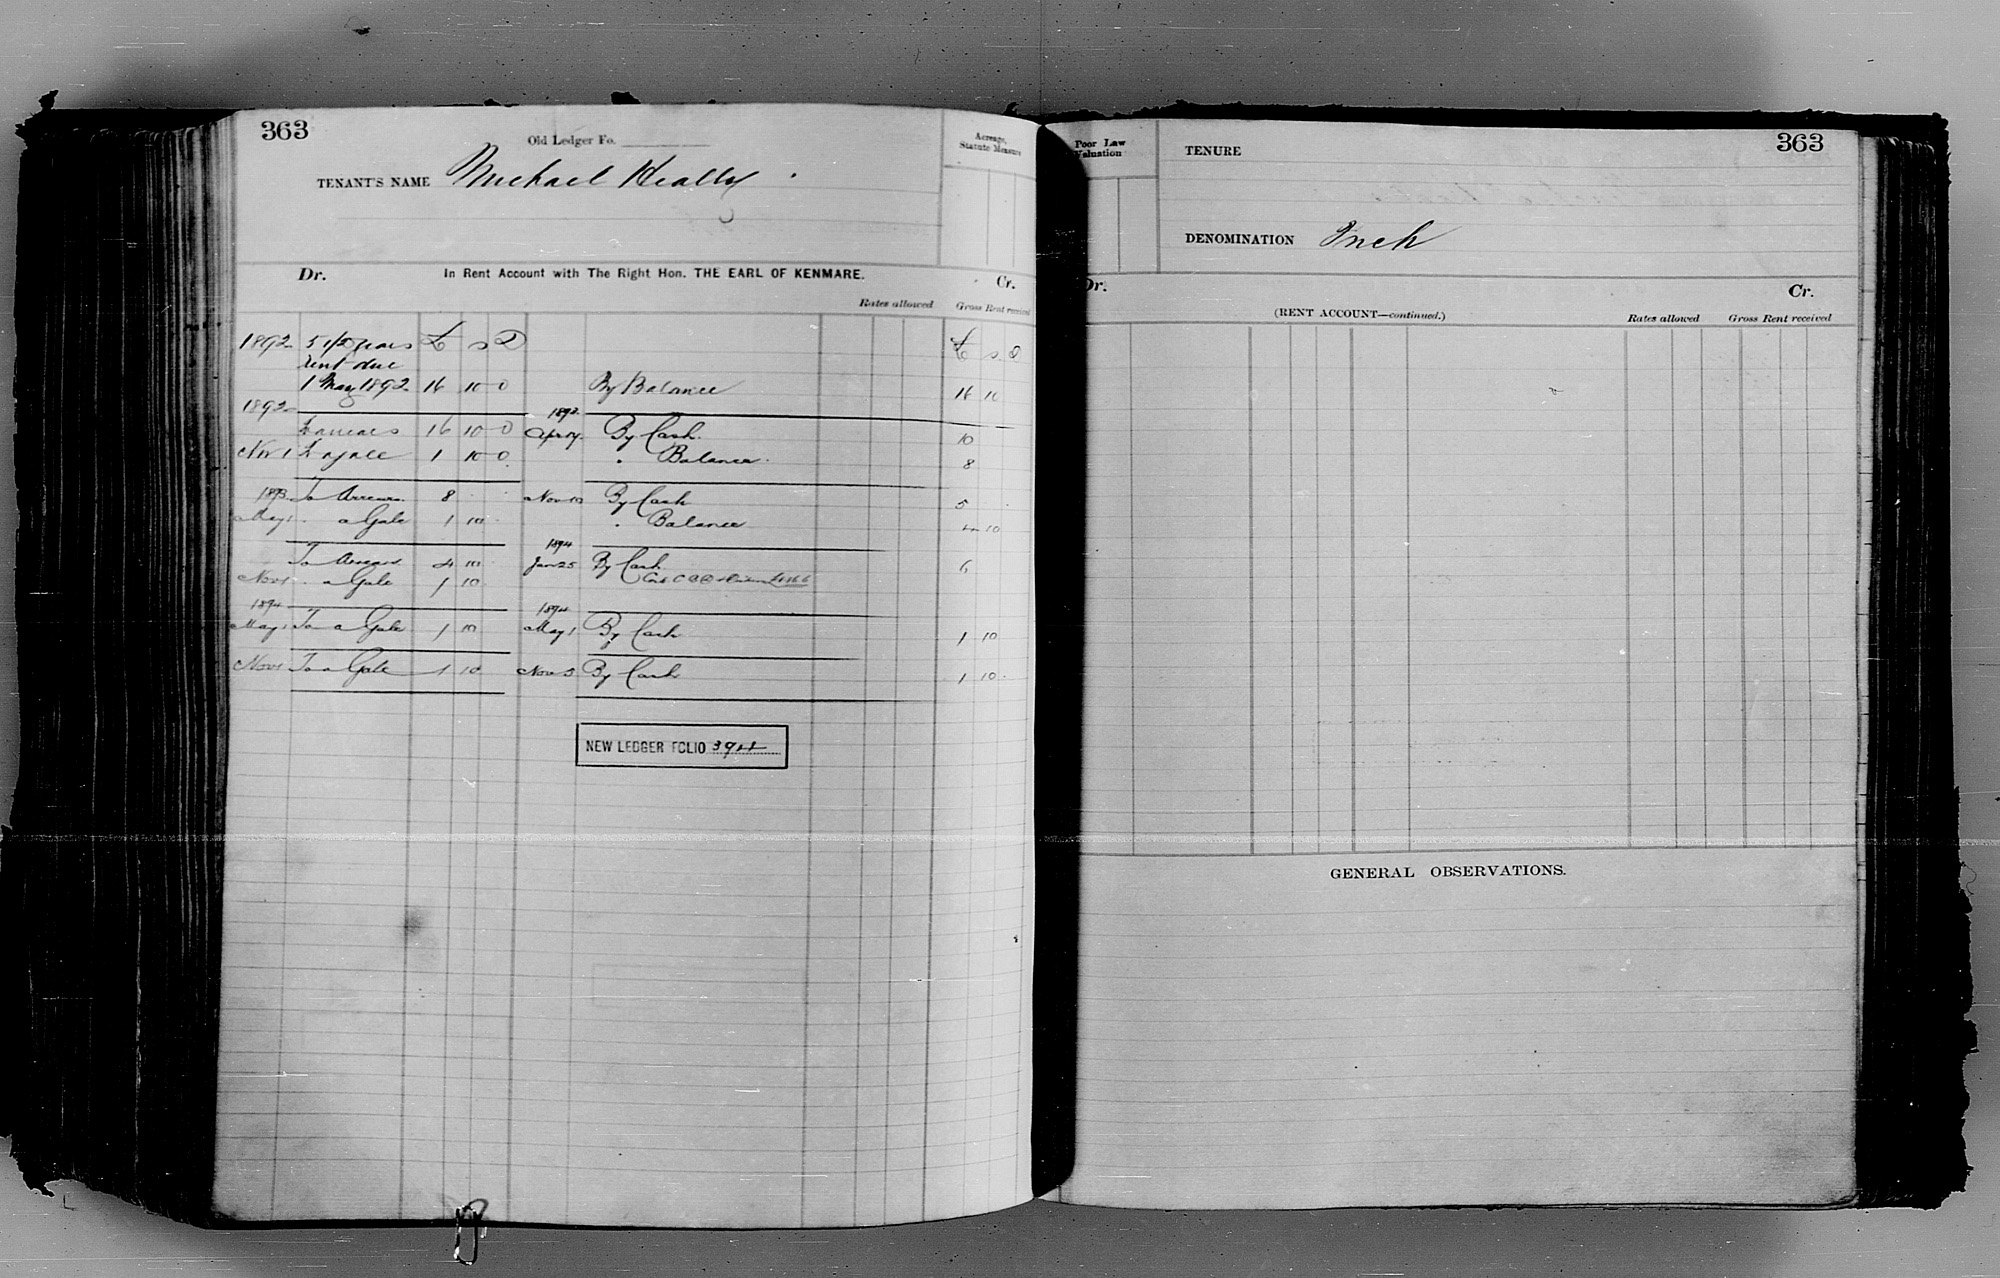 363
Old Ledger Fo.
Acreage, Statute Measure
TENANT'S NAME Michael Healy
Dr. In Rent Account with The Right Hon. THE EARL OF KENMARE. Cr.
Rates allowed Gross Rent received
1892 5 1/2 years £ s D £ s D
rent due
1 May 1892 16 10 0 By Balance 16 10
1892 1893
To arrears 16 10 0 Apr 14 By Cash 10
Nov 1 To a gale 1 10 0 " Balance 8
1893 To Arrears 8 Nov 10 By Cash 5
May 1 " a Gale 1 10 " Balance 4 10
1894
To Arrears 4 10 Jan 25 By Cash 6
Nov 1 " a Gale 1 10
1894 1894
May 1 To a Gale 1 10 May 1 By Cash 1 10
Nov 1 To a Gale 1 10 Nov 3 By Cash 1 10
NEW LEDGER FOLIO 394
363
Poor Law Valuation
TENURE
DENOMINATION Inch
Dr. Cr.
(RENT ACCOUNT—continued.) Rates allowed Gross Rent received
GENERAL OBSERVATIONS.